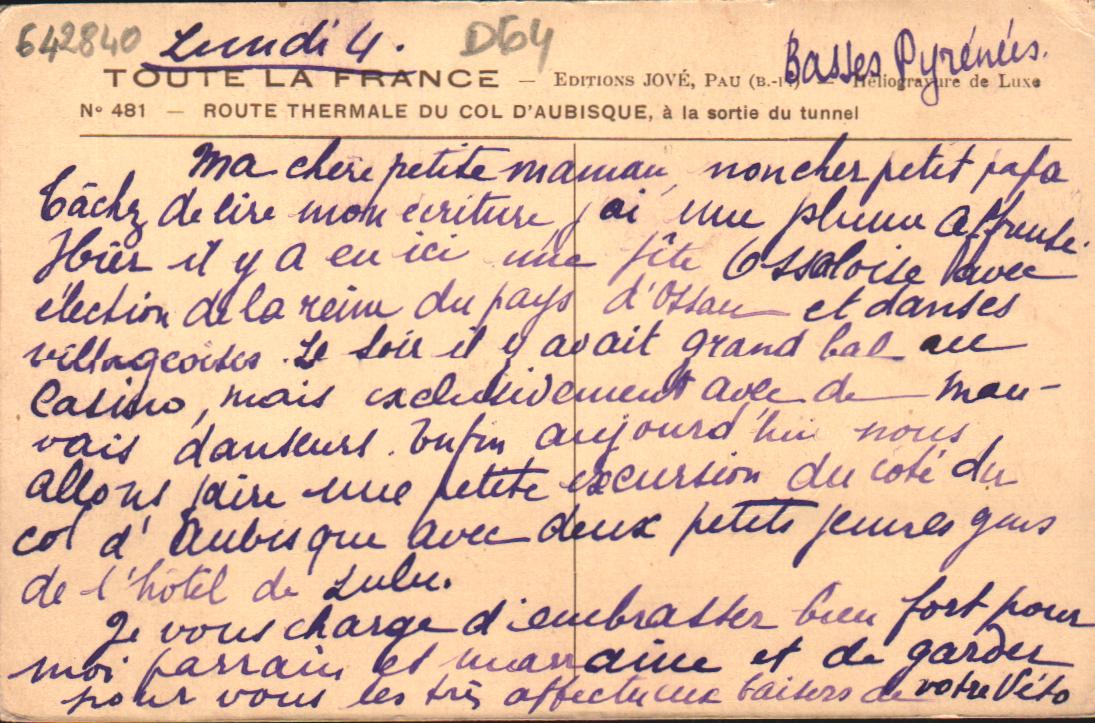 642840 Lundi 4. D64 Basses Pyrénées.
TOUTE LA FRANCE — EDITIONS JOVÉ, PAU (B.-P.) — Héliogravure de Luxe
N° 481 — ROUTE THERMALE DU COL D'AUBISQUE, à la sortie du tunnel
Ma chère petite maman, mon cher petit papa
Tâchez de lire mon écriture j'ai une plume affreuse.
Hier il y a eu ici une fête Ossaloise avec
élection de la reine du pays d'Ossau et danses
villageoises. Le soir il y avait grand bal au
Casino, mais exclusivement avec de mau-
vais danseurs. Enfin aujourd'hui nous
allons faire une petite excursion du côté du
col d'Aubisque avec deux petits jeunes gens
de l'hôtel de Lulu.
Je vous charge d'embrasser bien fort pour
moi parrain et marraine et de garder
pour vous les très affectueux baisers de votre